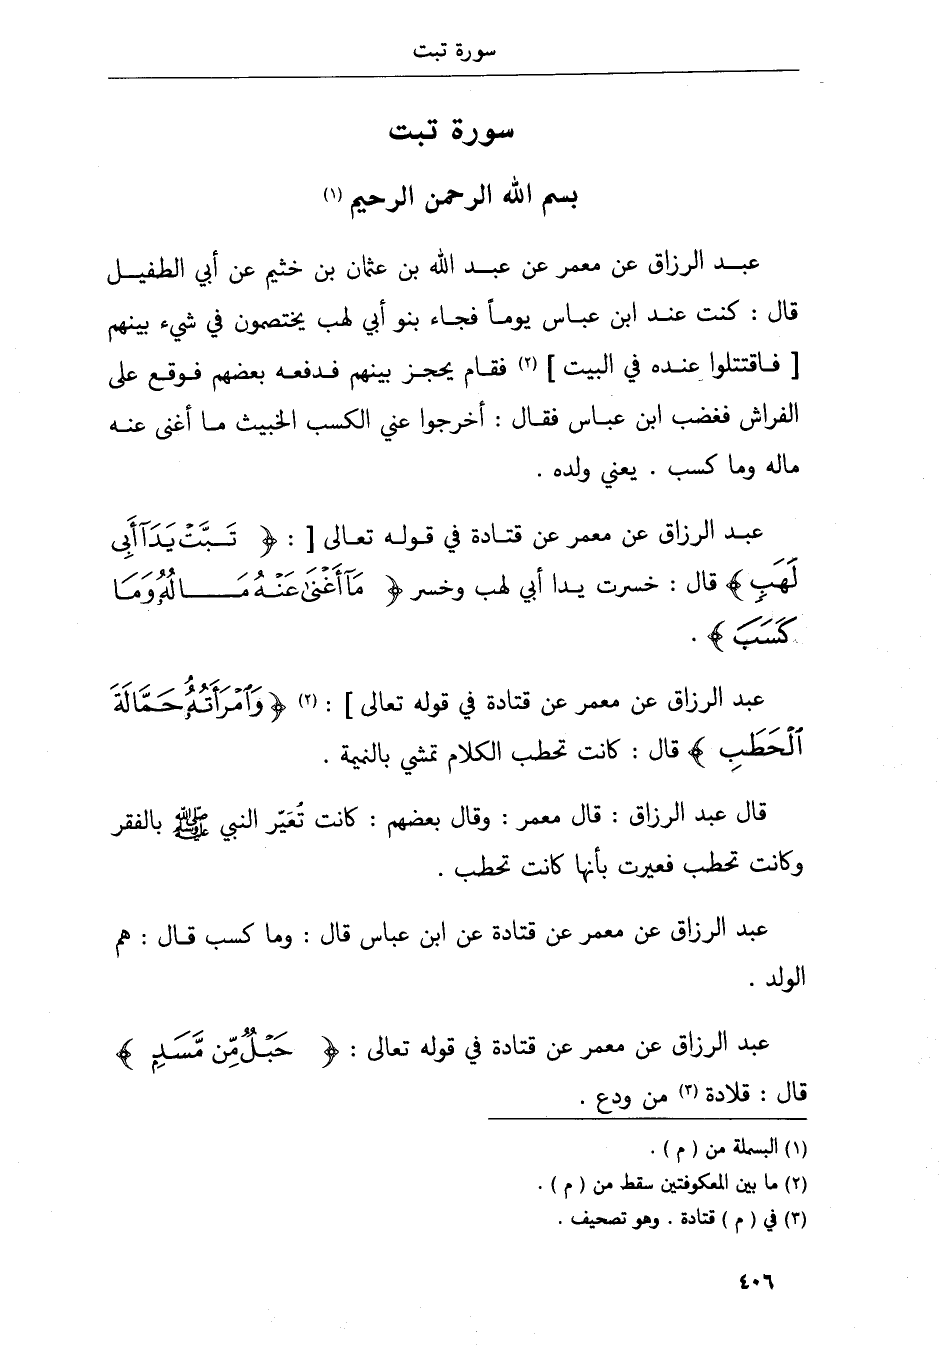 سورة تبت
سورة تبت
بسم الله الرحمن الرحيم (١)
عبـد الرزاق عن معمر عن عبـد الله بن عثمان بن خثيم عن أبي الطفيـل
قال : كنت عنـد ابن عبـاس يومـاً فجـاء بنو أبي لهب يختصمون في شيء بينهم
[ فـاقتتلوا عنـده في البيت ] (٢) فقـام يحجـز بينهم فـدفعـه بعضهم فـوقـع على
الفراش فغضب ابن عبـاس فقـال : أخرجوا عني الكسب الخبيث مـا أغنى عنـه
ماله وما كسب . يعني ولده .
عبـد الرزاق عن معمر عن قتـادة في قـولـه تعـالى [ : ﴿ تَـبَّتْ يَدَآ أَبِى
لَهَبٍ ﴾ قال : خسرت يـدا أبي لهب وخسر ﴿ مَآ أَغْنَىٰ عَنْـهُ مَـــالُهُۥ وَمَا
كَسَبَ ﴾ .
عبد الرزاق عن معمر عن قتادة في قوله تعالى ] : (٢) ﴿ وَٱمْرَأَتُهُۥ حَمَّالَةَ
ٱلْحَطَبِ ﴾ قال : كانت تحطب الكلام تمشي بالنميمة .
قال عبد الرزاق : قال معمر : وقال بعضهم : كانت تُعَيّر النبي ﷺ بالفقر
وكانت تحطب فعيرت بأنها كانت تحطب .
عبد الرزاق عن معمر عن قتادة عن ابن عباس قال : وما كسب قـال : هم
الولد .
عبد الرزاق عن معمر عن قتادة في قوله تعالى : ﴿ حَبْـلٌ مِّن مَّسَـدٍ ﴾
قال : قلادة (٣) من ودع .
(١) البسملة من ( م ) .
(٢) ما بين المعكوفتين سقط من ( م ) .
(٣) في ( م ) قتادة . وهو تصحيف .
٤٠٦